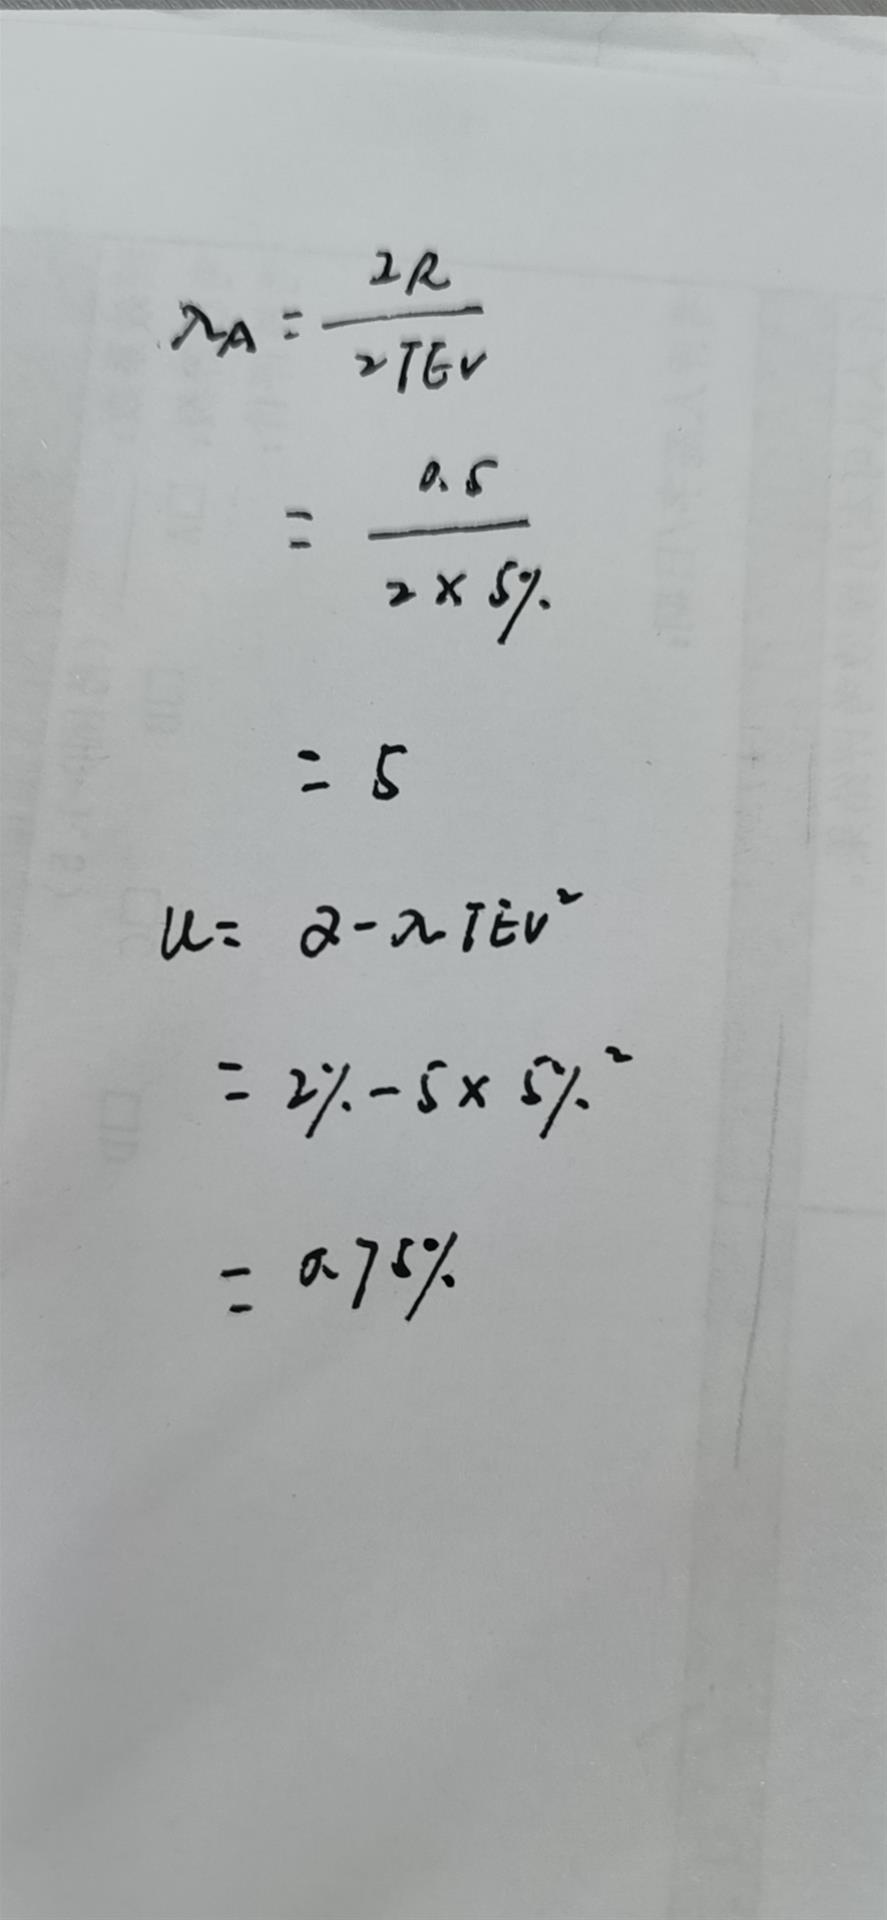 λA = IR / 2TEV
= 0.5 / 2 × 5%
= 5
U = α - λ TEV²
= 2% - 5 × 5%²
= 0.75%